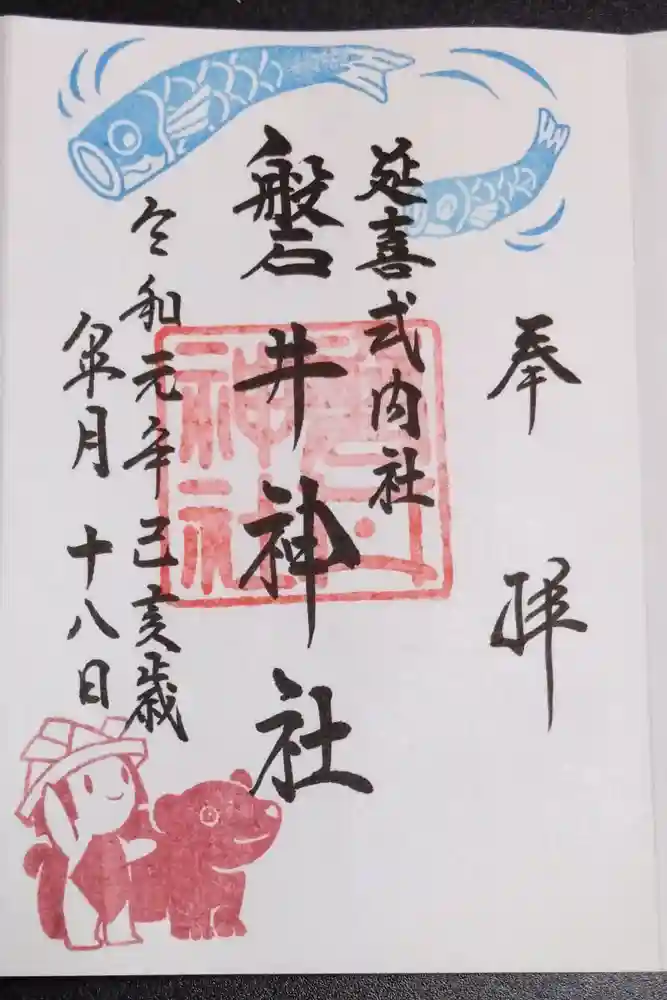 奉拝
延喜式内社
磐井神社
令和元年己亥歳
皐月十八日
神社